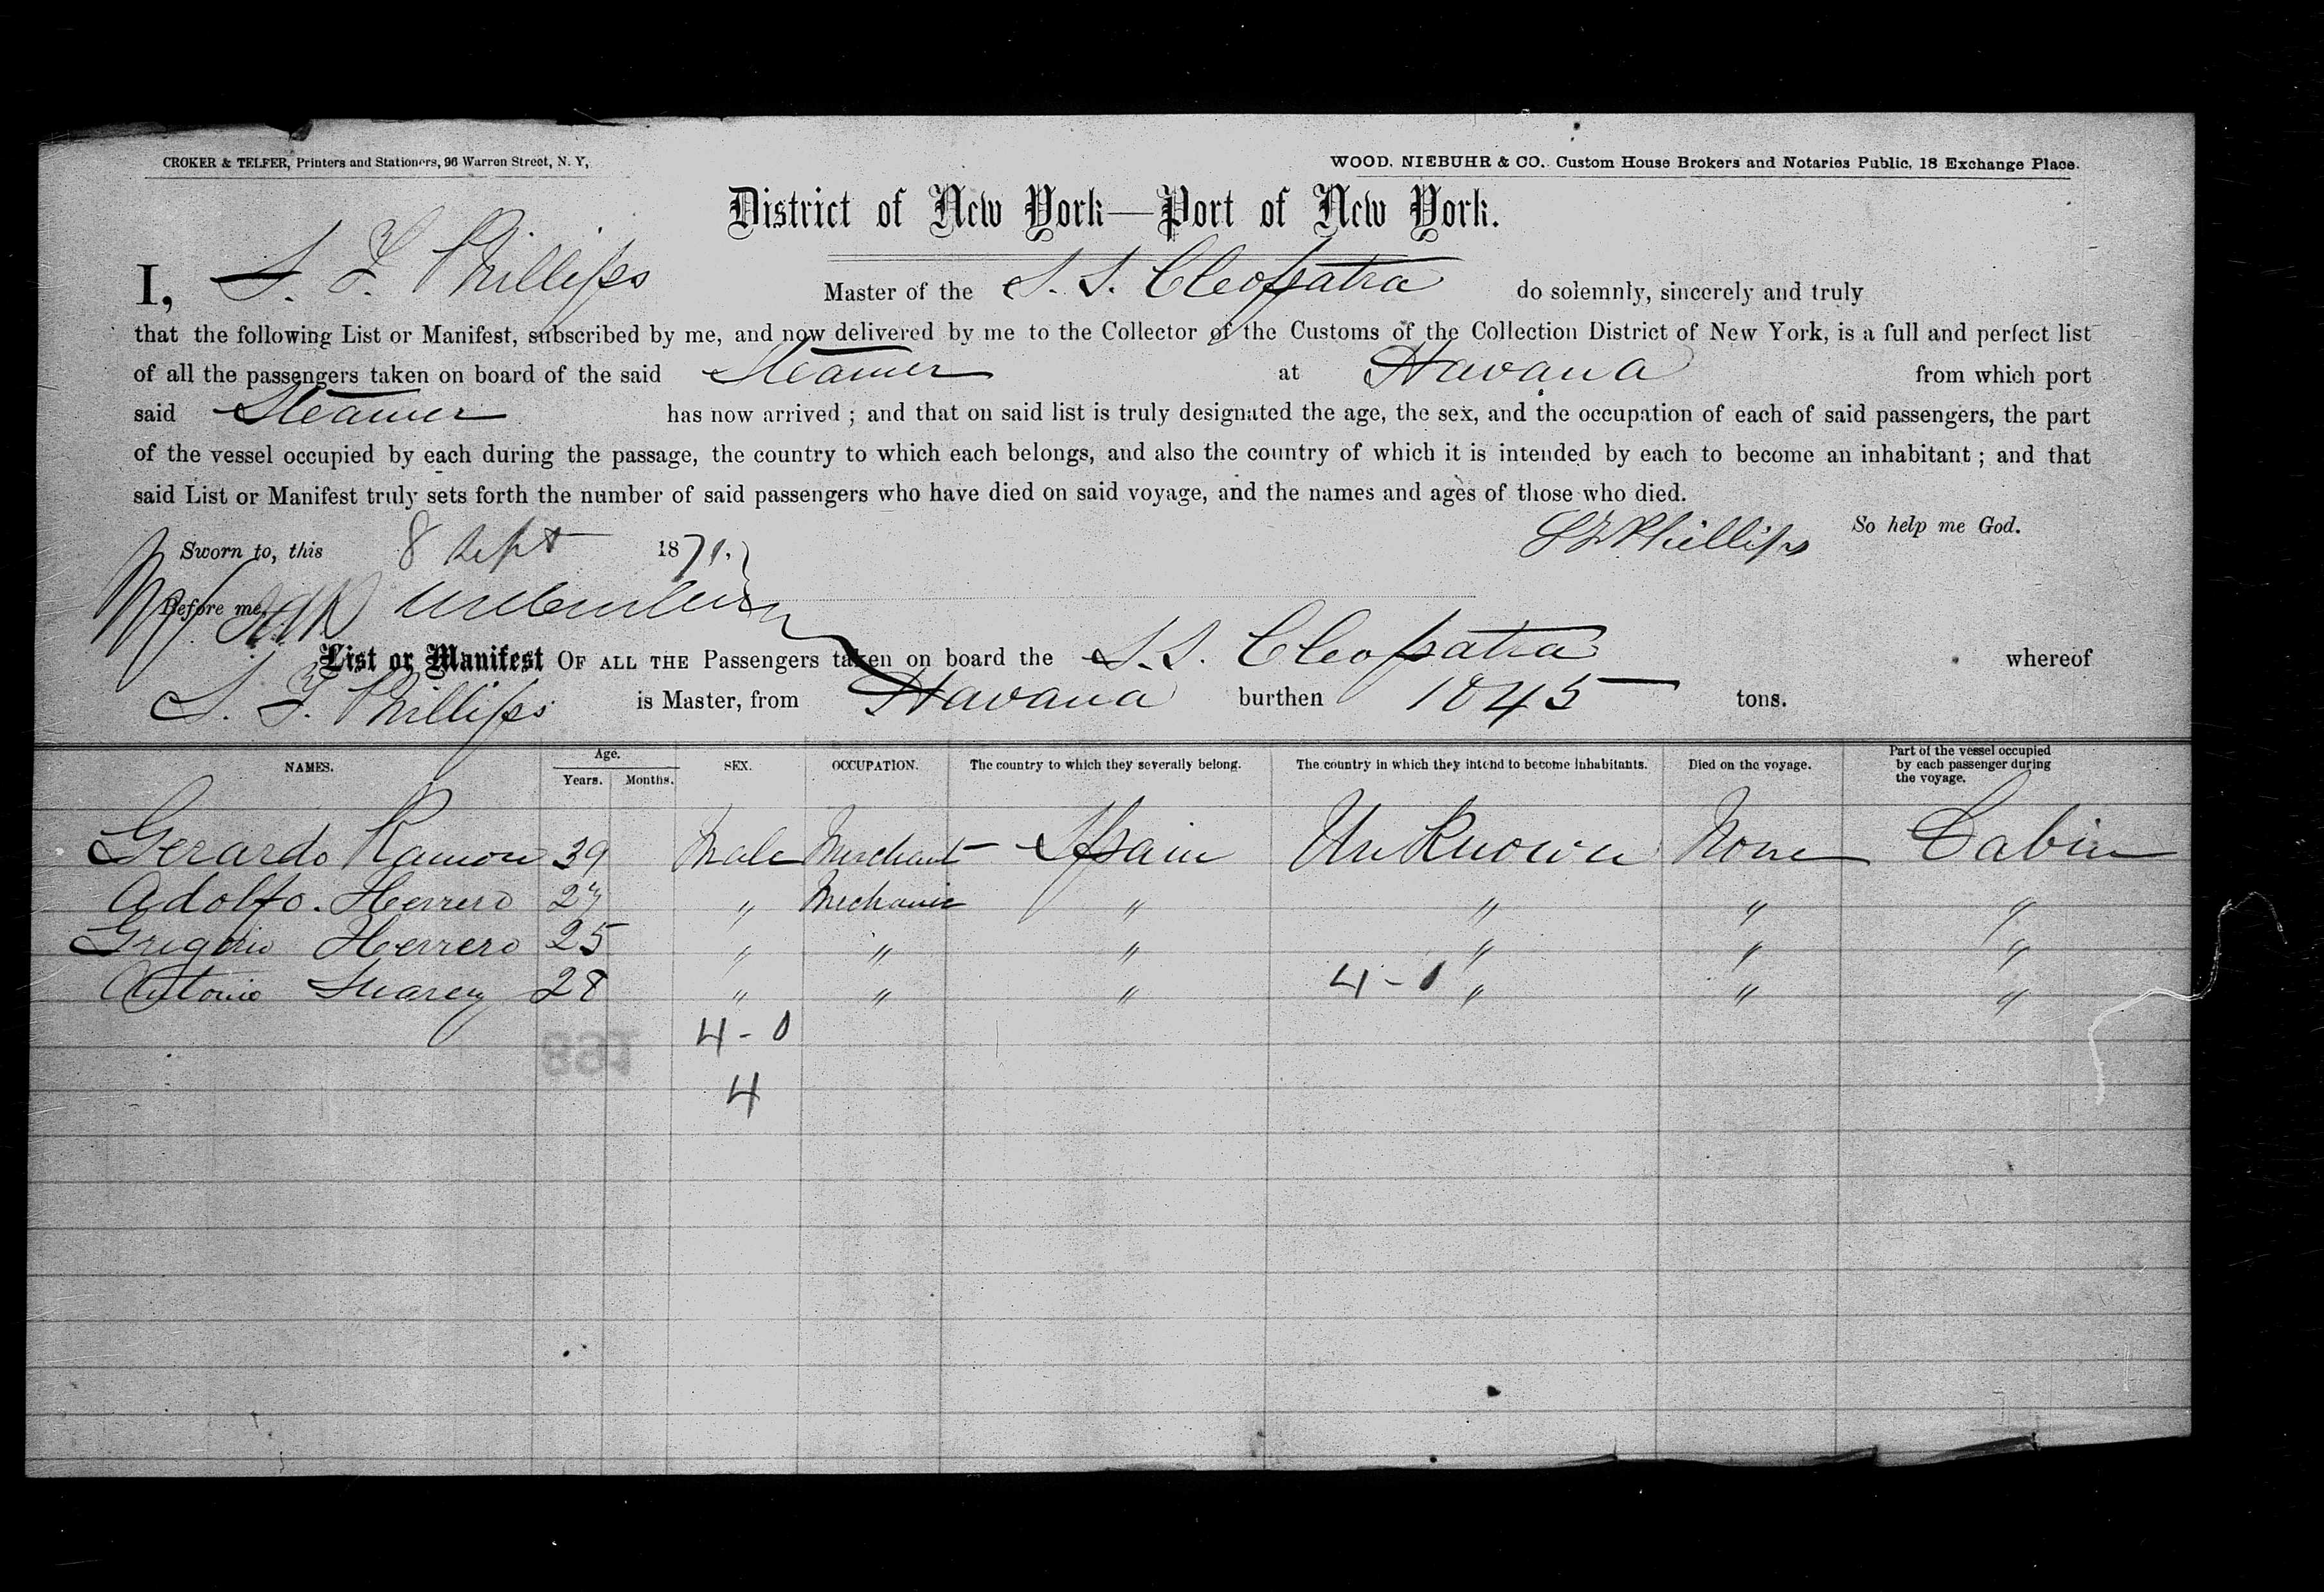 CROKER & TELFER, Printers and Stationers, 96 Warren Street, N. Y,
WOOD, NIEBUHR & CO. Custom House Brokers and Notaries Public, 18 Exchange Place.
District of New York—Port of New York.
I, S. F. Phillips Master of the S. S. Cleopatra do solemnly, sincerely and truly
that the following List or Manifest, subscribed by me, and now delivered by me to the Collector of the Customs of the Collection District of New York, is a full and perfect list
of all the passengers taken on board of the said Steamer at Havana from which port
said Steamer has now arrived ; and that on said list is truly designated the age, the sex, and the occupation of each of said passengers, the part
of the vessel occupied by each during the passage, the country to which each belongs, and also the country of which it is intended by each to become an inhabitant ; and that
said List or Manifest truly sets forth the number of said passengers who have died on said voyage, and the names and ages of those who died.
So help me God.
Sworn to, this 8 Sept 1871. S F Phillips
Before me,
List or Manifest OF ALL THE Passengers taken on board the S. S. Cleopatra whereof
S. F. Phillips is Master, from Havana burthen 1045 tons.
NAMES. Age. Years. Months. SEX. OCCUPATION. The country to which they severally belong. The country in which they intend to become inhabitants. Died on the voyage. Part of the vessel occupied by each passenger during the voyage.
Gerardo Ramon 39 Male Merchant Spain UnKnown None Cabin
Adolfo. Herrero 27 " Mechanic " " " "
Grigorio Herrero 25 " " " " " "
Antonio Suarez 28 " " " 4-0 " " "
4-0
4